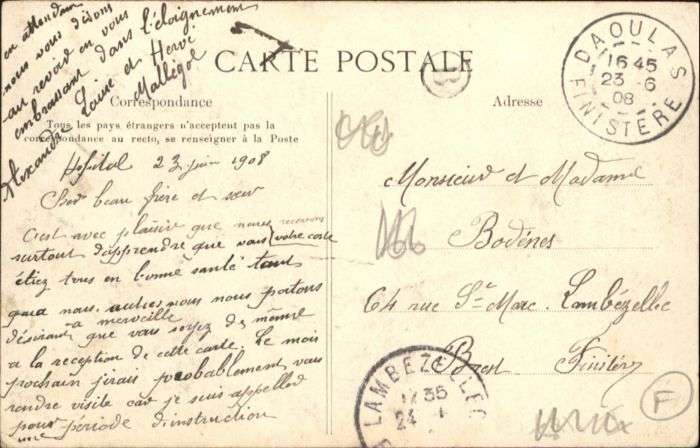 CARTE POSTALE
Correspondance
Tous les pays étrangers n'acceptent pas la
correspondance au recto, se renseigner à la Poste
Adresse
Hopital 23 juin 1908
Cher beau frère et sœur
C'est avec plaisir que nous recevons
votre carte
surtout d'apprendre que vous
étiez tous en bonne santé tant
que nous autres, nous nous portons
à merveille
désirant que vous soyez de même
a la réception de cette carte. Le mois
prochain j'irais probablement vous
rendre visite car je suis appelled
pour une période d'instruction
en attendant
nous vous disons
au revoir en vous
embrassant dans l'éloignement
Alexandre Louise et Hervé
Mallégol
Monsieur et Madame
Bodénes
64 rue St-Marc. Lambézellec
Brest Finistère
DAOULAS
16 45
23 - 6
08
FINISTÈRE
LAMBEZELLEC
35
24
B
F